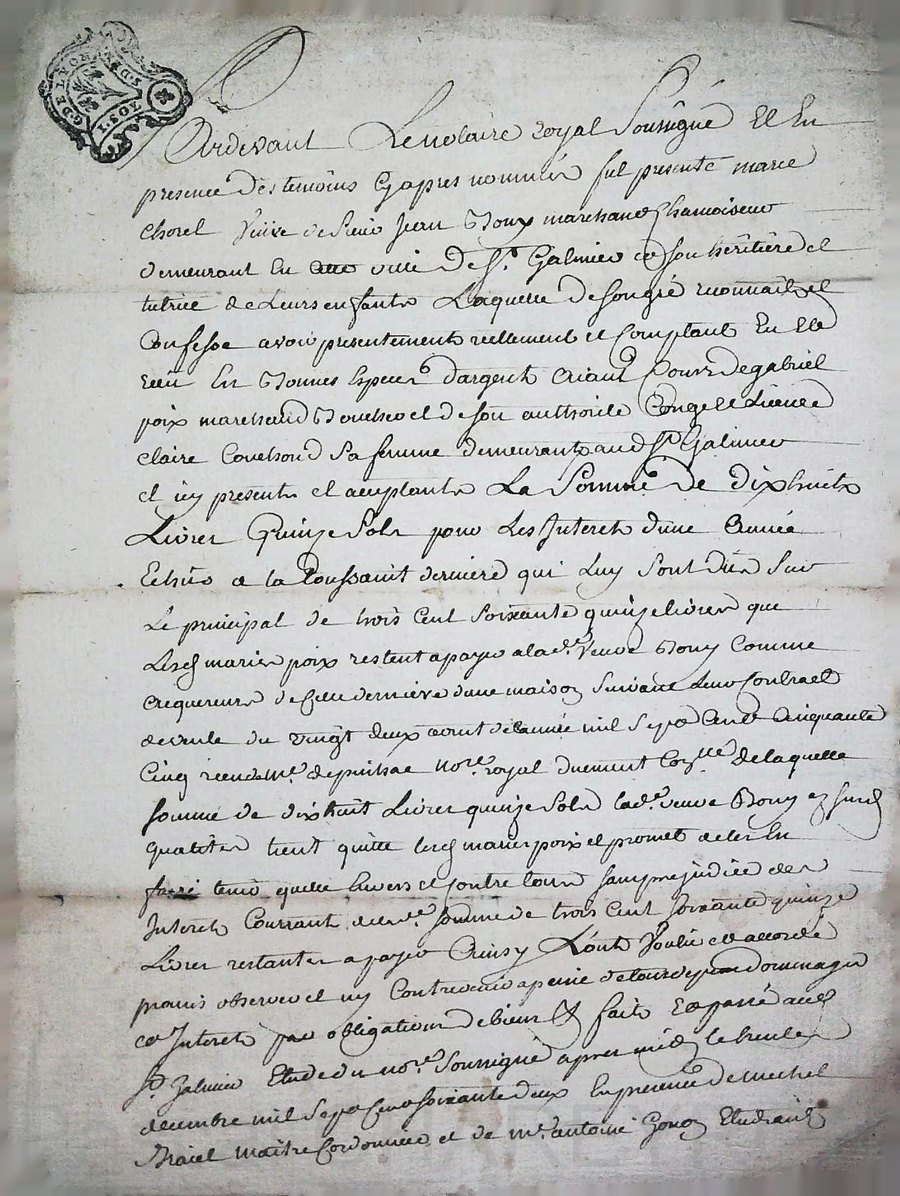 G. DE LYON
Pardevant Le notaire royal Soussigné Et En
presence des temoins Cyapres nommés fut presente marie
chorel Veuve de Sieur Jean Bony marchand Chamoiseur
demeurant En cette ville De St. Galmier et son héritière et
tutrice de Leurs enfants Laquelle de son gré reconnait et
Confesse avoir presentement reellement et Comptant Eu et
reçu En Bonnes Especes d'argent aiant Cours de gabriel
poix marchand Boucher et de son authorité Congé et Licence
claire Couchoud Sa femme demeurants aud St. Galmier
et icy presents et acceptants La Somme de dixhuit
Livres Quinze Sols pour Les Interets d'une Année
Echüe a la Toussaint derniere qui Luy Sont dus Sur
Le principal de trois Cent Soixante quinze livres que
Lesd mariés poix restent a payer a lade. Veuve Bony Comme
acquereurs de Cette derniere d'une maison Suivant Leur Contract
de vente du vingt deux aout de l'année mil Sept Cent Cinquante
Cinq reçu de Me. nore. royal duement de laquelle
Somme de dix huit Livres quinze Sols lade. veuve Bony ez Susd
qualités tient quitte lesd mariés poix et promet de les En
faire tenir quitte Envers et Contre tous sans prejudice des
Interets Courrant de lade. Somme de trois Cent Soixante quinze
Livres restantes a payer Ainsy L'ont Voulu et accordé
promis observer et ny Contrevenir a peine de tous depens dommages
et Interets par obligation de biens & fait Et passé aud
St. Galmier Etude du nore. Soussigné apres midy le trente
decembre mil Sept Cent Soixante deux En presence de michel
maitre Cordonnier et de me. antoine Etudiant